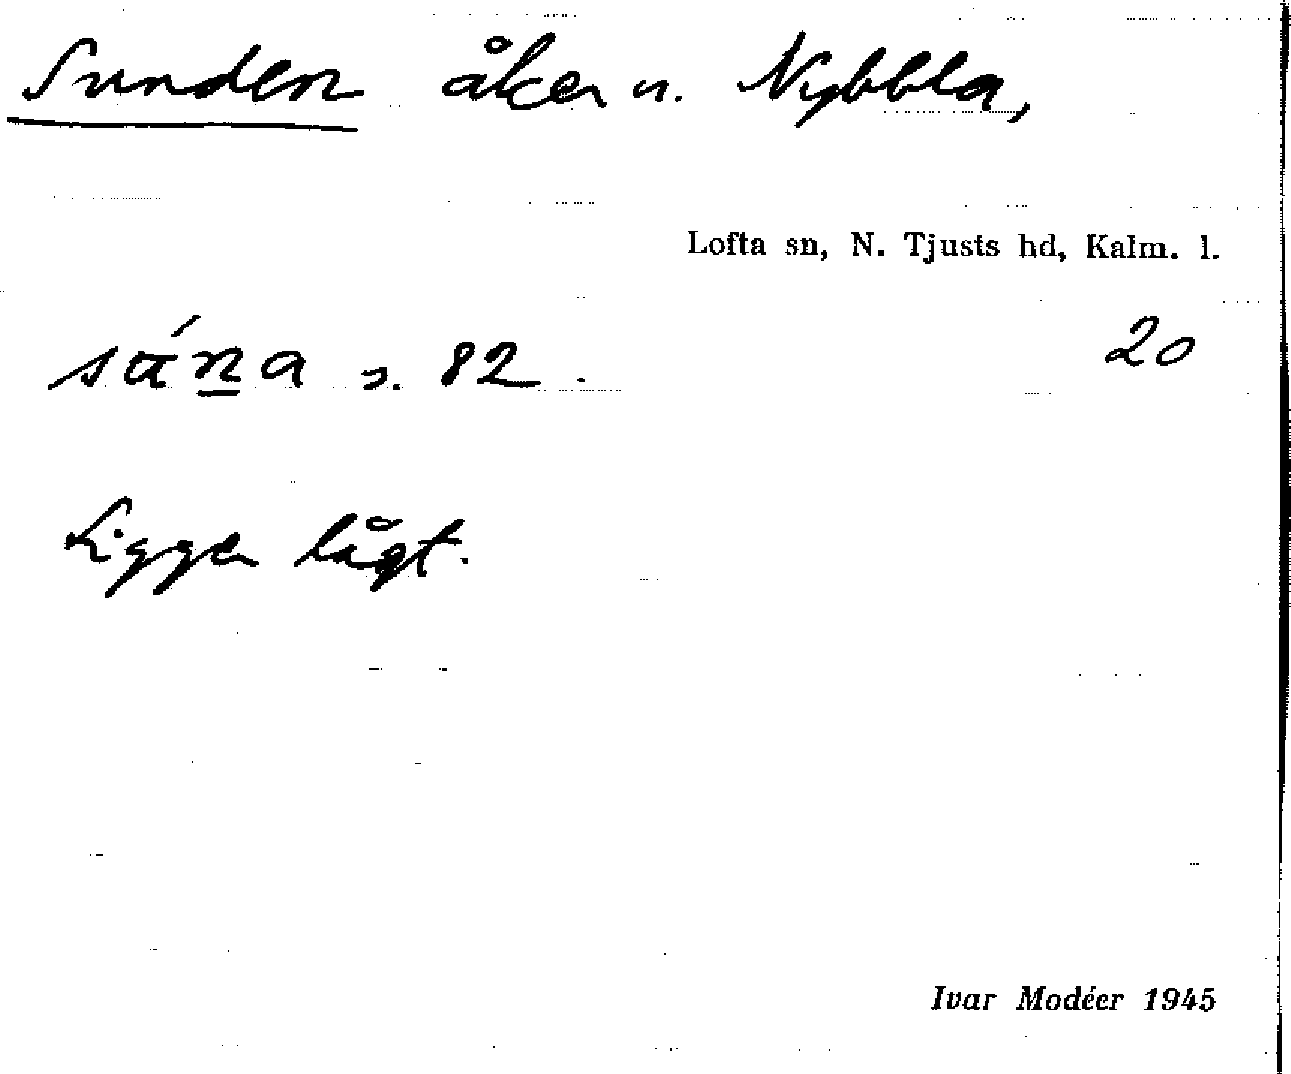 Sunden åker n. Nybbla,
Lofta sn, N. Tjusts hd, Kalm. l.
20
s. 82.
Ligger lågt.
Ivar Modéer 1945